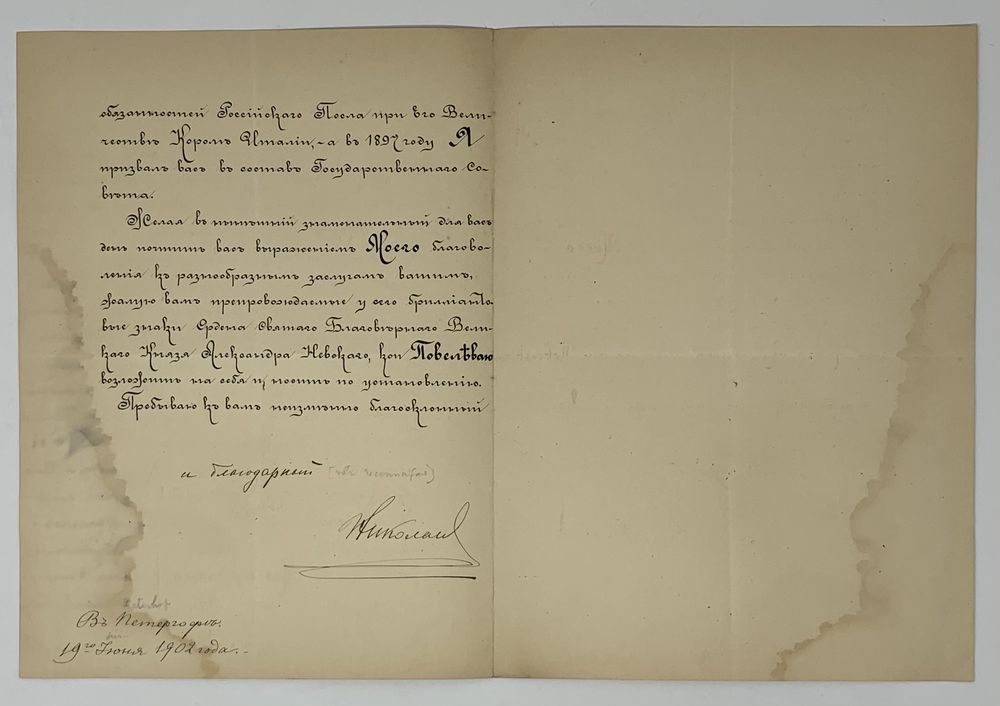 обязанностей Россійскаго Посла при Его Вели-
чествѣ Королѣ Италіи, - а въ 1897 году Я
призвалъ васъ въ составъ Государственнаго Со-
вѣта.
Желая въ нынѣшній знаменательный для васъ
день почтить васъ выраженіемъ Моего благово-
ленія къ разнообразнымъ заслугамъ вашимъ,
жалую вамъ препровождаемые у сего брилліанто-
вые знаки Ордена Святаго Благовѣрнаго Вели-
каго Князя Александра Невскаго, кои Повелѣваю
возложить на себя и носить по установленію.
Пребываю къ вамъ неизмѣнно благосклонный
и благодарный
Николай
Peterhof
Въ Петергофѣ.
19го Іюня 1902 года.-